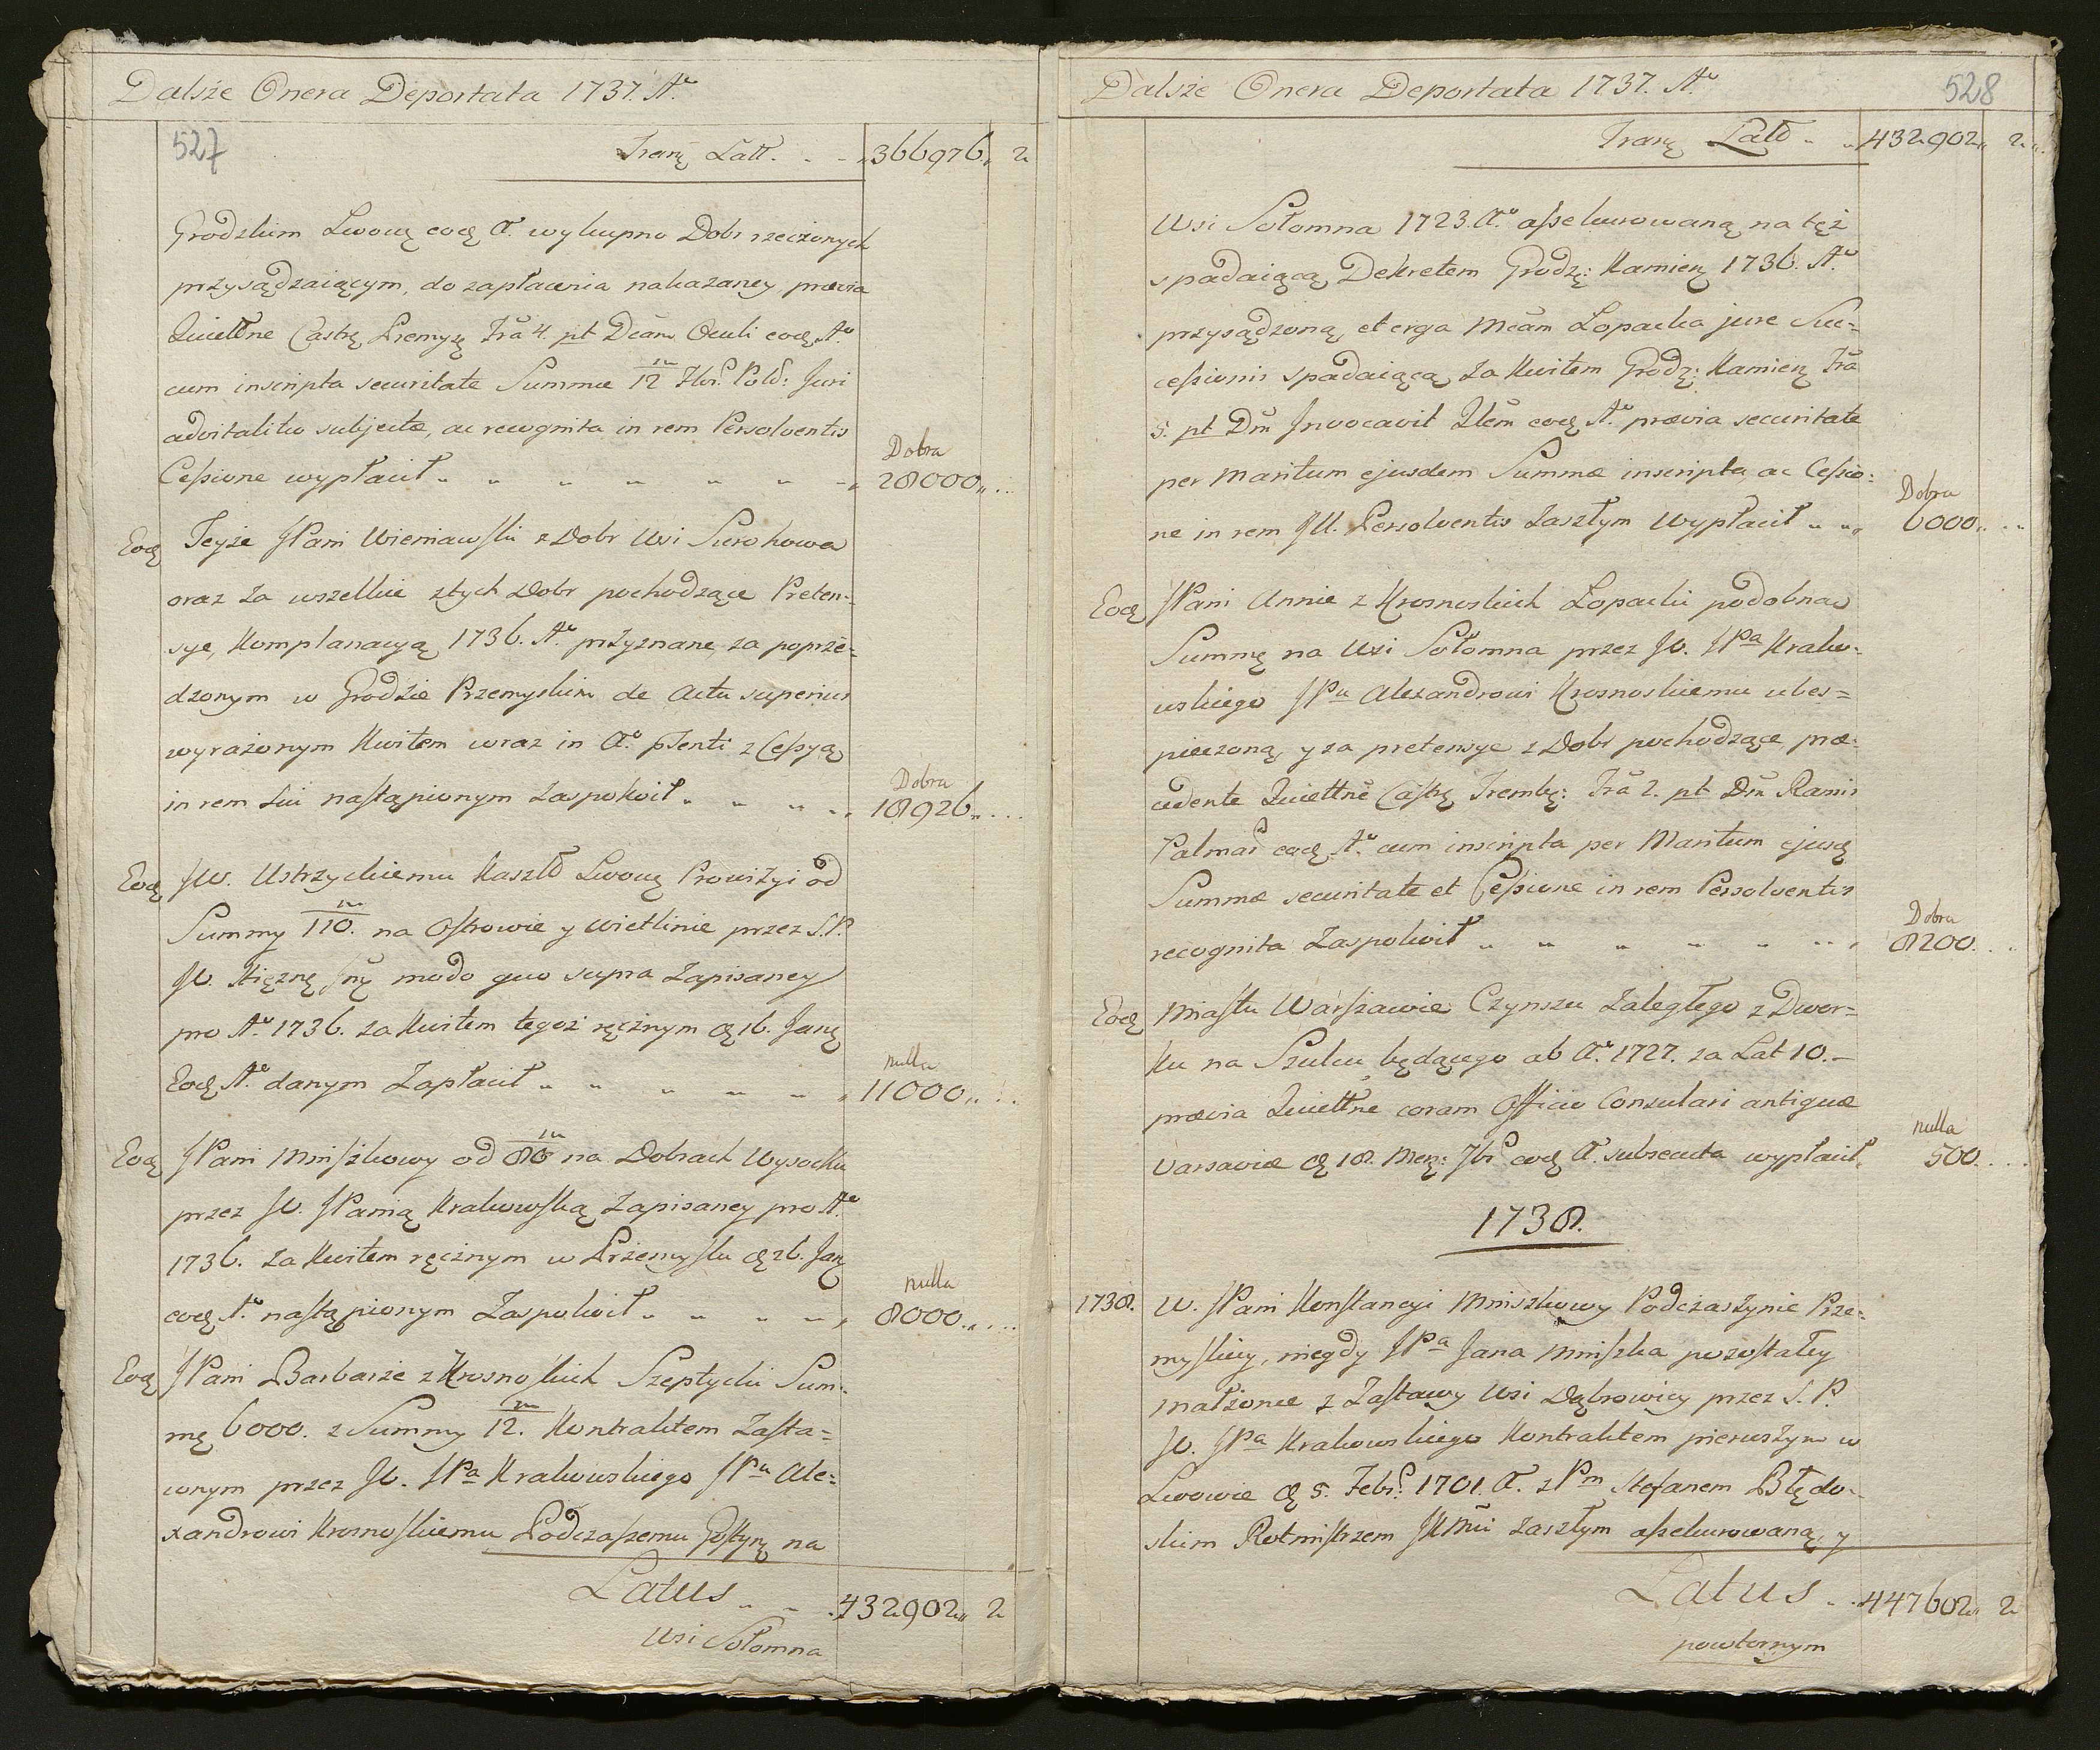 Dalsze Onera Deportata 1737. Aº
527
Tranȝ Latt. . . „ 366976„ 2
Grodzkim Lwowȝ eodȝ A. wykupno Dobr rzeczonych
przysądzaiącym, do zapłacenia nakazaney, prævia
Quiettne Castrȝ Premysȝ Frã 4. pt Dcam Oculi eodȝ Aº.
cum inscripta securitate Summæ 12 m Złr. Pold: Juri
advitalitio subjectæ, ac recognita in rem Persolventis
Cessione wypłacił „ „ „ „ „ „ „ Dobra 28000„...
Eodȝ Teyże JPani Wieniawski z Dobr Wsi Surohowa
oraz za wszelkie z tych Dobr pochodzące Preten=
sye, Komplanacyą 1736. Aº przyznane, za poprze=
dzonym w Grodzie Przemyskim de Actu superius
wyrażonym Kwitem wraz in Aº. psenti z Cessyą
in rem sui nastąpionym zaspokoił „ „ „ „ Dobra 18926„...
Eodȝ JW. Ustrzyckiemu Kasztȝ Lwowȝ Prowizyi od
Summy 110 m. na Ostrowie y Wietlinie przez S.P.
JO. Xiężnę Jnȝ modo quo supra zapisaney
pro Aº. 1736. za Kwitem tegoż ręcznym dȝ 16. Janȝ
Eodȝ Aº danym zapłacił „ „ „ „ „ nulla 11000„...
Eodȝ JPani Mniszkowy od 80 m na Dobrach Wysocku
przez JO. JPanią Krakowską zapisaney pro Aº
1736. za Kwitem ręcznym w Przemyslu dȝ 26. Janȝ
eodȝ Aº nastąpionym zaspokoił „ „ „ „ nulla 8000„...
Eodȝ JPani Barbarze z Krosnoskich Szeptycki Sum=
mę 6000. z Summy 12 m. Kontraktem zasta=
wnym przez JO. JPa Krakowskiego JPu Ale=
xandrowi Krosnoskiemu Podczaszemu Gostynȝ na
Latus „ „ 432902„ 2
Wsi Sołomna
Dalsze Onera Deportata 1737. Aº
528
Tranȝ Latȝ „ „ 432902„ 2„.
Wsi Sołomna 1723. Aº. assekurowaną na tęż
spadaiącą Dekretem Grodȝ: Kamienȝ 1736. Aº
przysądzoną, et erga Mcam Łopacka jure Suc=
cessionis spadaiącą za Kwitem Grodȝ: Kamienȝ Frã
5. pt Dm Invocavit Qlem eodȝ Aº. prævia securitate
per Maritum ejusdem Summæ inscripta, ac Cessio=
ne in rem Jll. Persolventis zaszłym wypłacił „ „ Dobra 6000„...
Eodȝ JPani Annie z Krosnoskich Łopacki podobnąż
Summę na Wsi Sołomna przez JO. JPa Krako=
wskiego JPu Alexandrowi Krosnoskiemu ubes=
pieczoną, y za pretensye z Dobr pochodzące, præ=
cedente Quiettne Castrȝ Trembȝ: Frã 2. pt Dm Ramis
Palmar eodȝ Aº cum inscripta per Maritum ejusdȝ
Summæ securitate et Cessione in rem Persolventis
recognita zaspokoił „ „ „ „ „ „ Dobra 8200...
Eodȝ Miastu Warszawie Czynszu zaległego z Dwor=
ku na Szulcu będącego ab Aº. 1727. za Lat 10.—
prævia Quiettne coram Officio Consulari antiquæ
Varsaviæ dȝ 18. Menȝ: 7br eodȝ A. subsecuta wypłacił„ nulla 500...
1738.
1738. W. JPani Konstancyi Mniszkowy Podczaszynie Prze=
myskiey, niegdy JPa Jana Mniszka pozostałey
małżonce z zastawy Wsi Dąbrowicy przez S. P.
JO. JPa Krakowskiego Kontraktem pierwszym w
Lwowie dȝ 5. Febr. 1701. A. z Pm Stefanem Błędo=
skim Rotmistrzem JKMci zaszłym assekurowaną, y
Latus „ „ 447602„ 2
powtornym